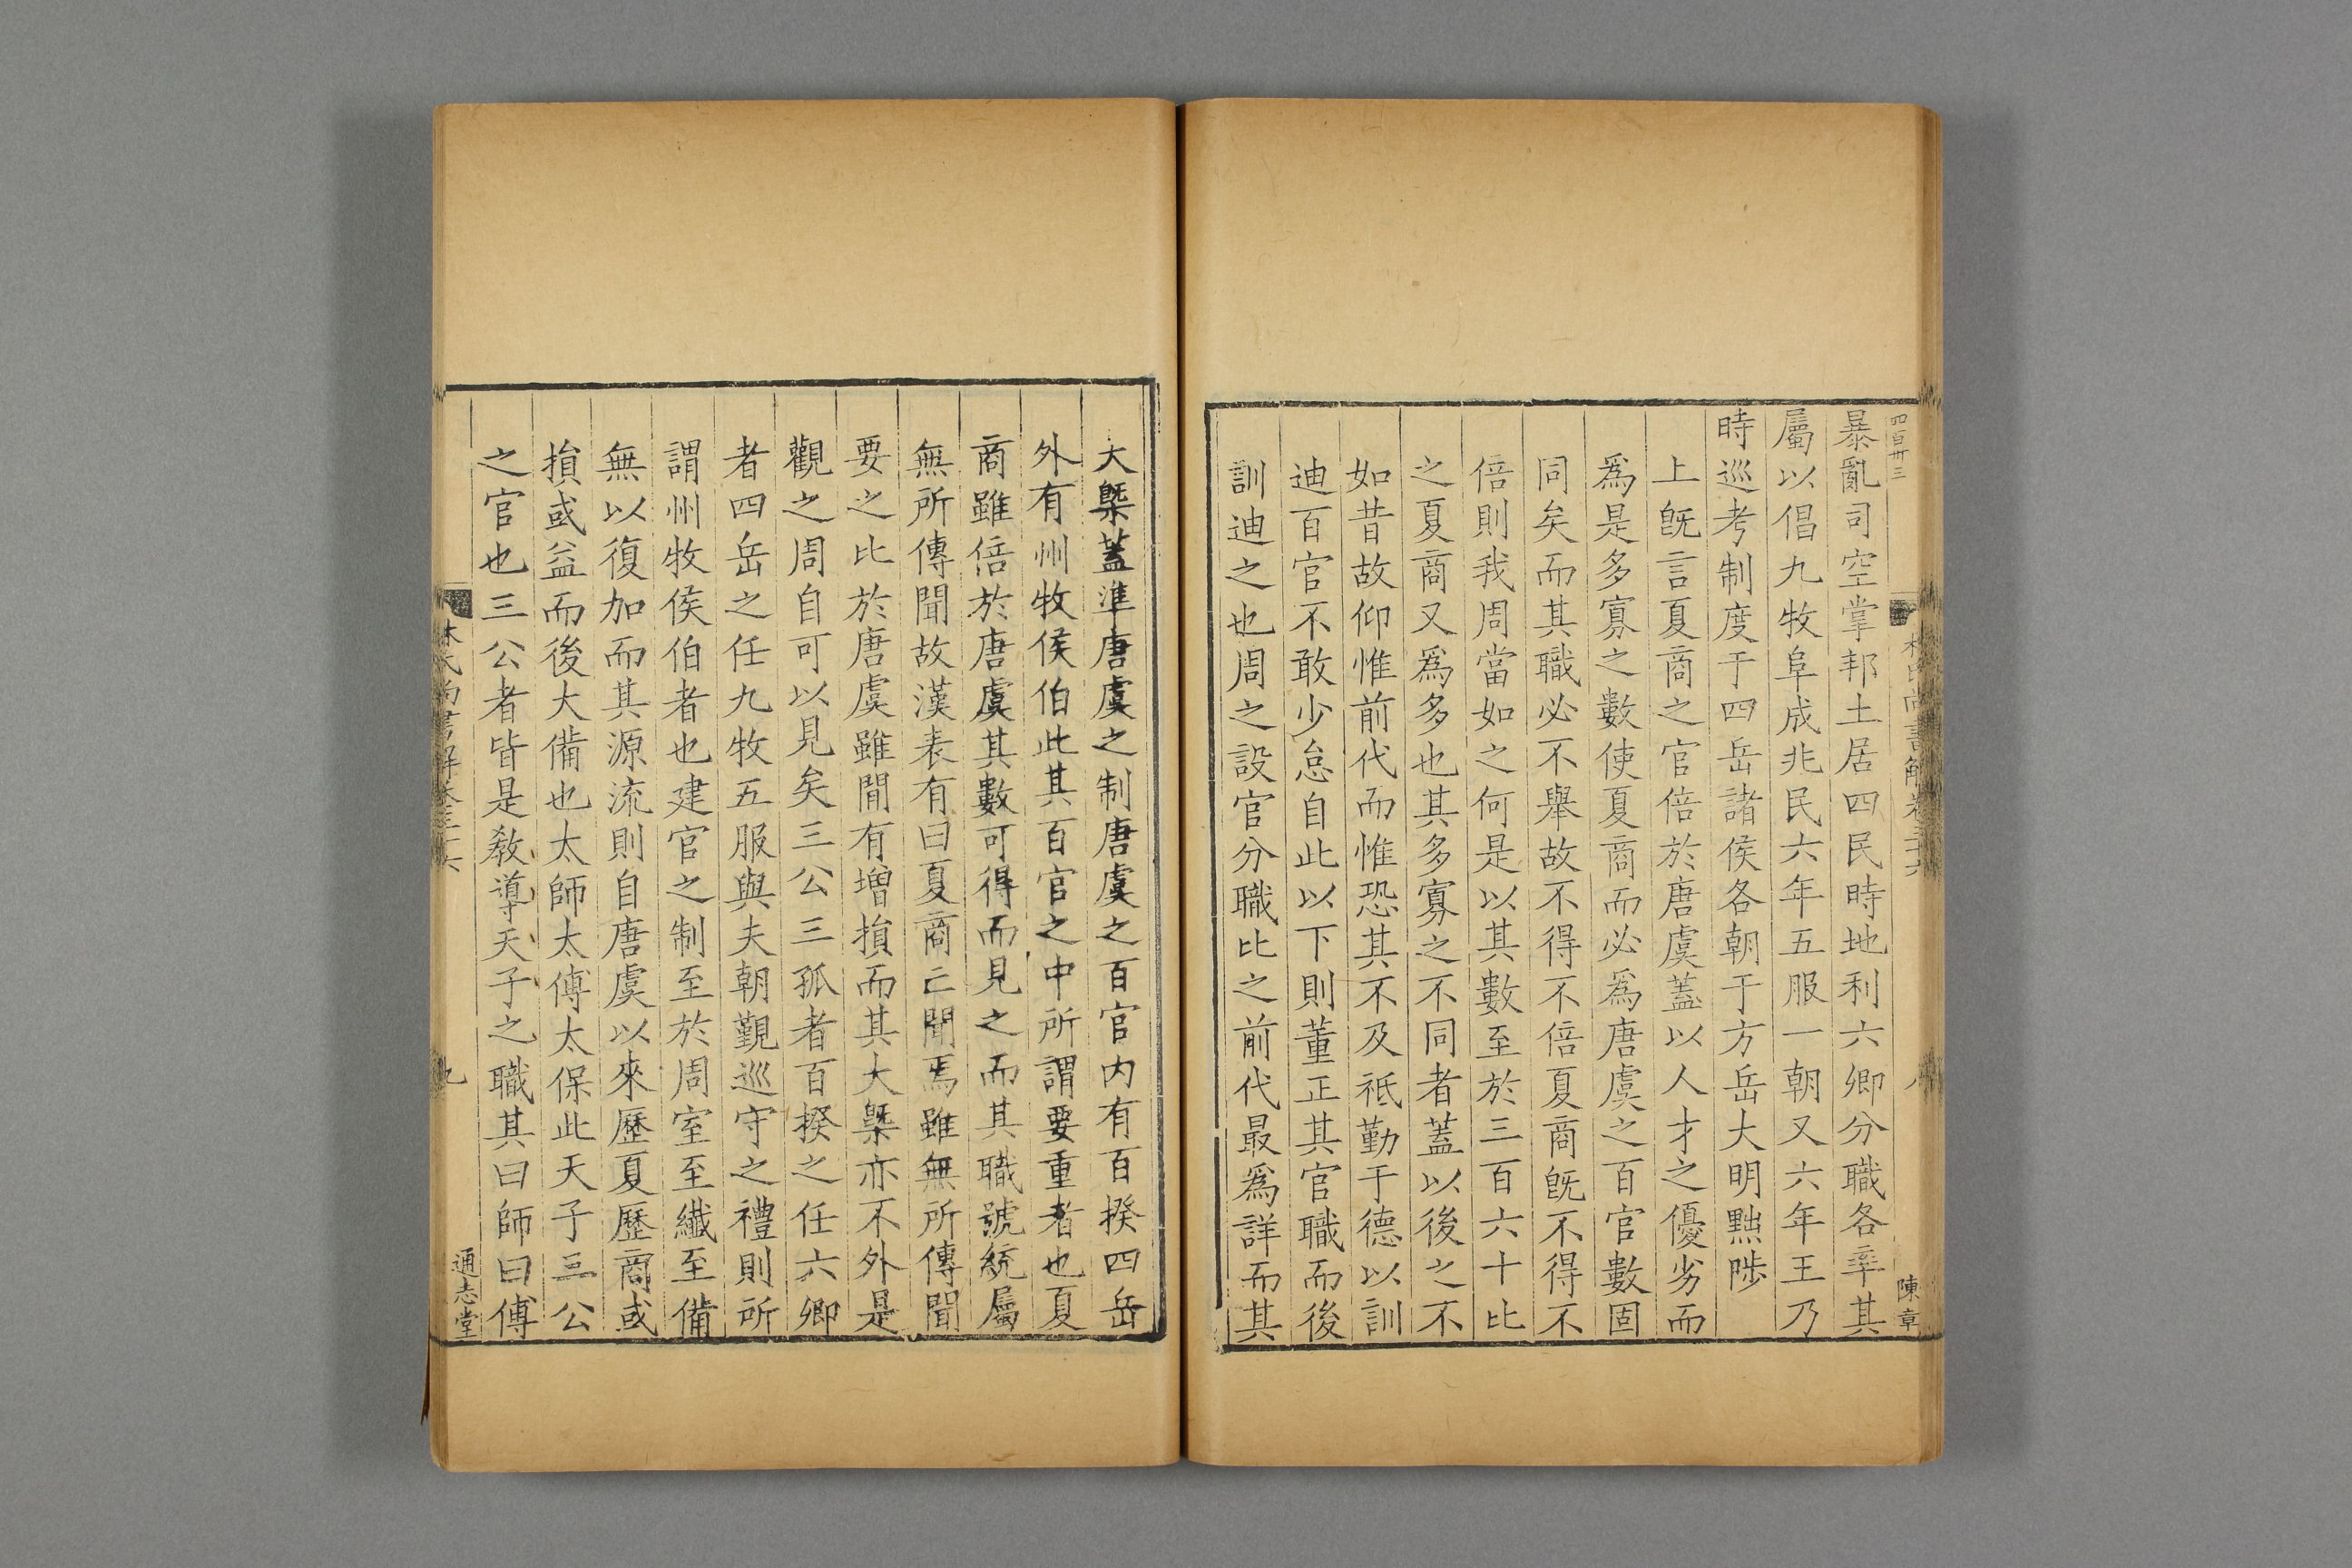 四百卅三
陳章
暴亂司空掌邦土居四民時地利六卿分職各率其
屬以倡九牧阜成兆民六年五服一朝又六年王乃
時巡考制度于四岳諸侯各朝于方岳大明黜陟
上旣言夏商之官倍於唐虞蓋以人才之優劣而
爲是多寡之數使夏商而必爲唐虞之百官數固
同矣而其職必不舉故不得不倍夏商旣不得不
倍則我周當如之何是以其數至於三百六十比
之夏商又爲多也其多寡之不同者蓋以後之不
如昔故仰惟前代而惟恐其不及祗勤于德以訓
迪百官不敢少怠自此以下則董正其官職而後
訓迪之也周之設官分職比之前代最爲詳而其
大槩蓋準唐虞之制唐虞之百官内有百揆四岳
外有州牧侯伯此其百官之中所謂要重者也夏
商雖倍於唐虞其數可得而見之而其職號統屬
無所傳聞故漢表有曰夏商亡聞焉雖無所傳聞
要之比於唐虞雖間有增損而其大槩亦不外是
觀之周自可以見矣三公三孤者百揆之任六卿
者四岳之任九牧五服與夫朝覲巡守之禮則所
謂州牧侯伯者也建官之制至於周室至纖至備
無以復加而其源流則自唐虞以來歷夏歷商或
損或益而後大備也太師太傅太保此天子三公
之官也三公者皆是敎導天子之職其曰師曰傅
林氏尚書解卷三十六
九
通志堂